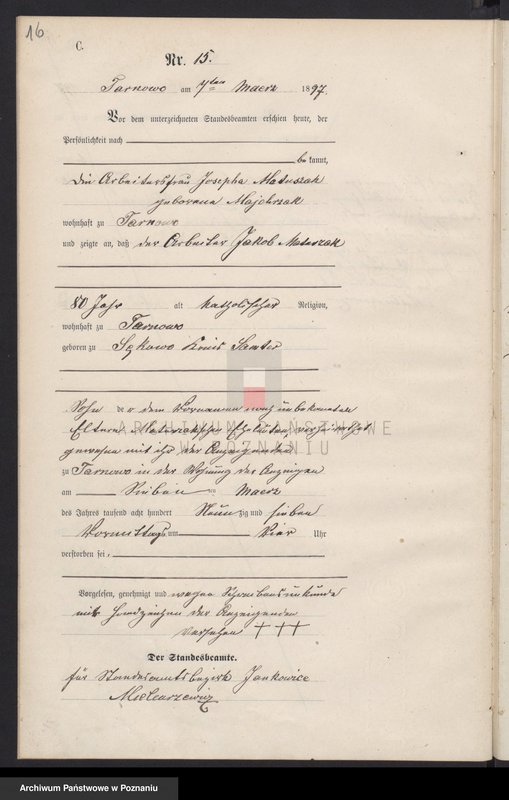 16
C.
Nr. 15.
Tarnowo am 7ten Maerz 1897.
Vor dem unterzeichneten Standesbeamten erschien heute, der
Persönlichkeit nach
bekannt,
die Arbeitersfrau Josepha Matuszak
geborene Majchrzak
wohnhaft zu Tarnowo
und zeigte an, daß der Arbeiter Jakob Matuszak
80 Jahr alt katholischer Religion,
wohnhaft zu Tarnowo
geboren zu Sękowo Kreis Samter
Sohn der dem Vornamen nach unbekannten
Eltern Matuszak'schen Eheleuten, verheirathet
gewesen mit ihr der Anzeigenden
zu Tarnowo in der Wohnung der Anzeigen
am Sieben ten Maerz
des Jahres tausend acht hundert Neunzig und sieben
Vormittags um Vier Uhr
verstorben sei,
Vorgelesen, genehmigt und wegen Schreibensunkunde
mit Handzeichen der Anzeigenden
versehen +++
Der Standesbeamte.
für Standesamtsbezirk Jankowice
ARCHIWUM PAŃSTWOWE
W POZNANIU
Archiwum Państwowe w Poznaniu